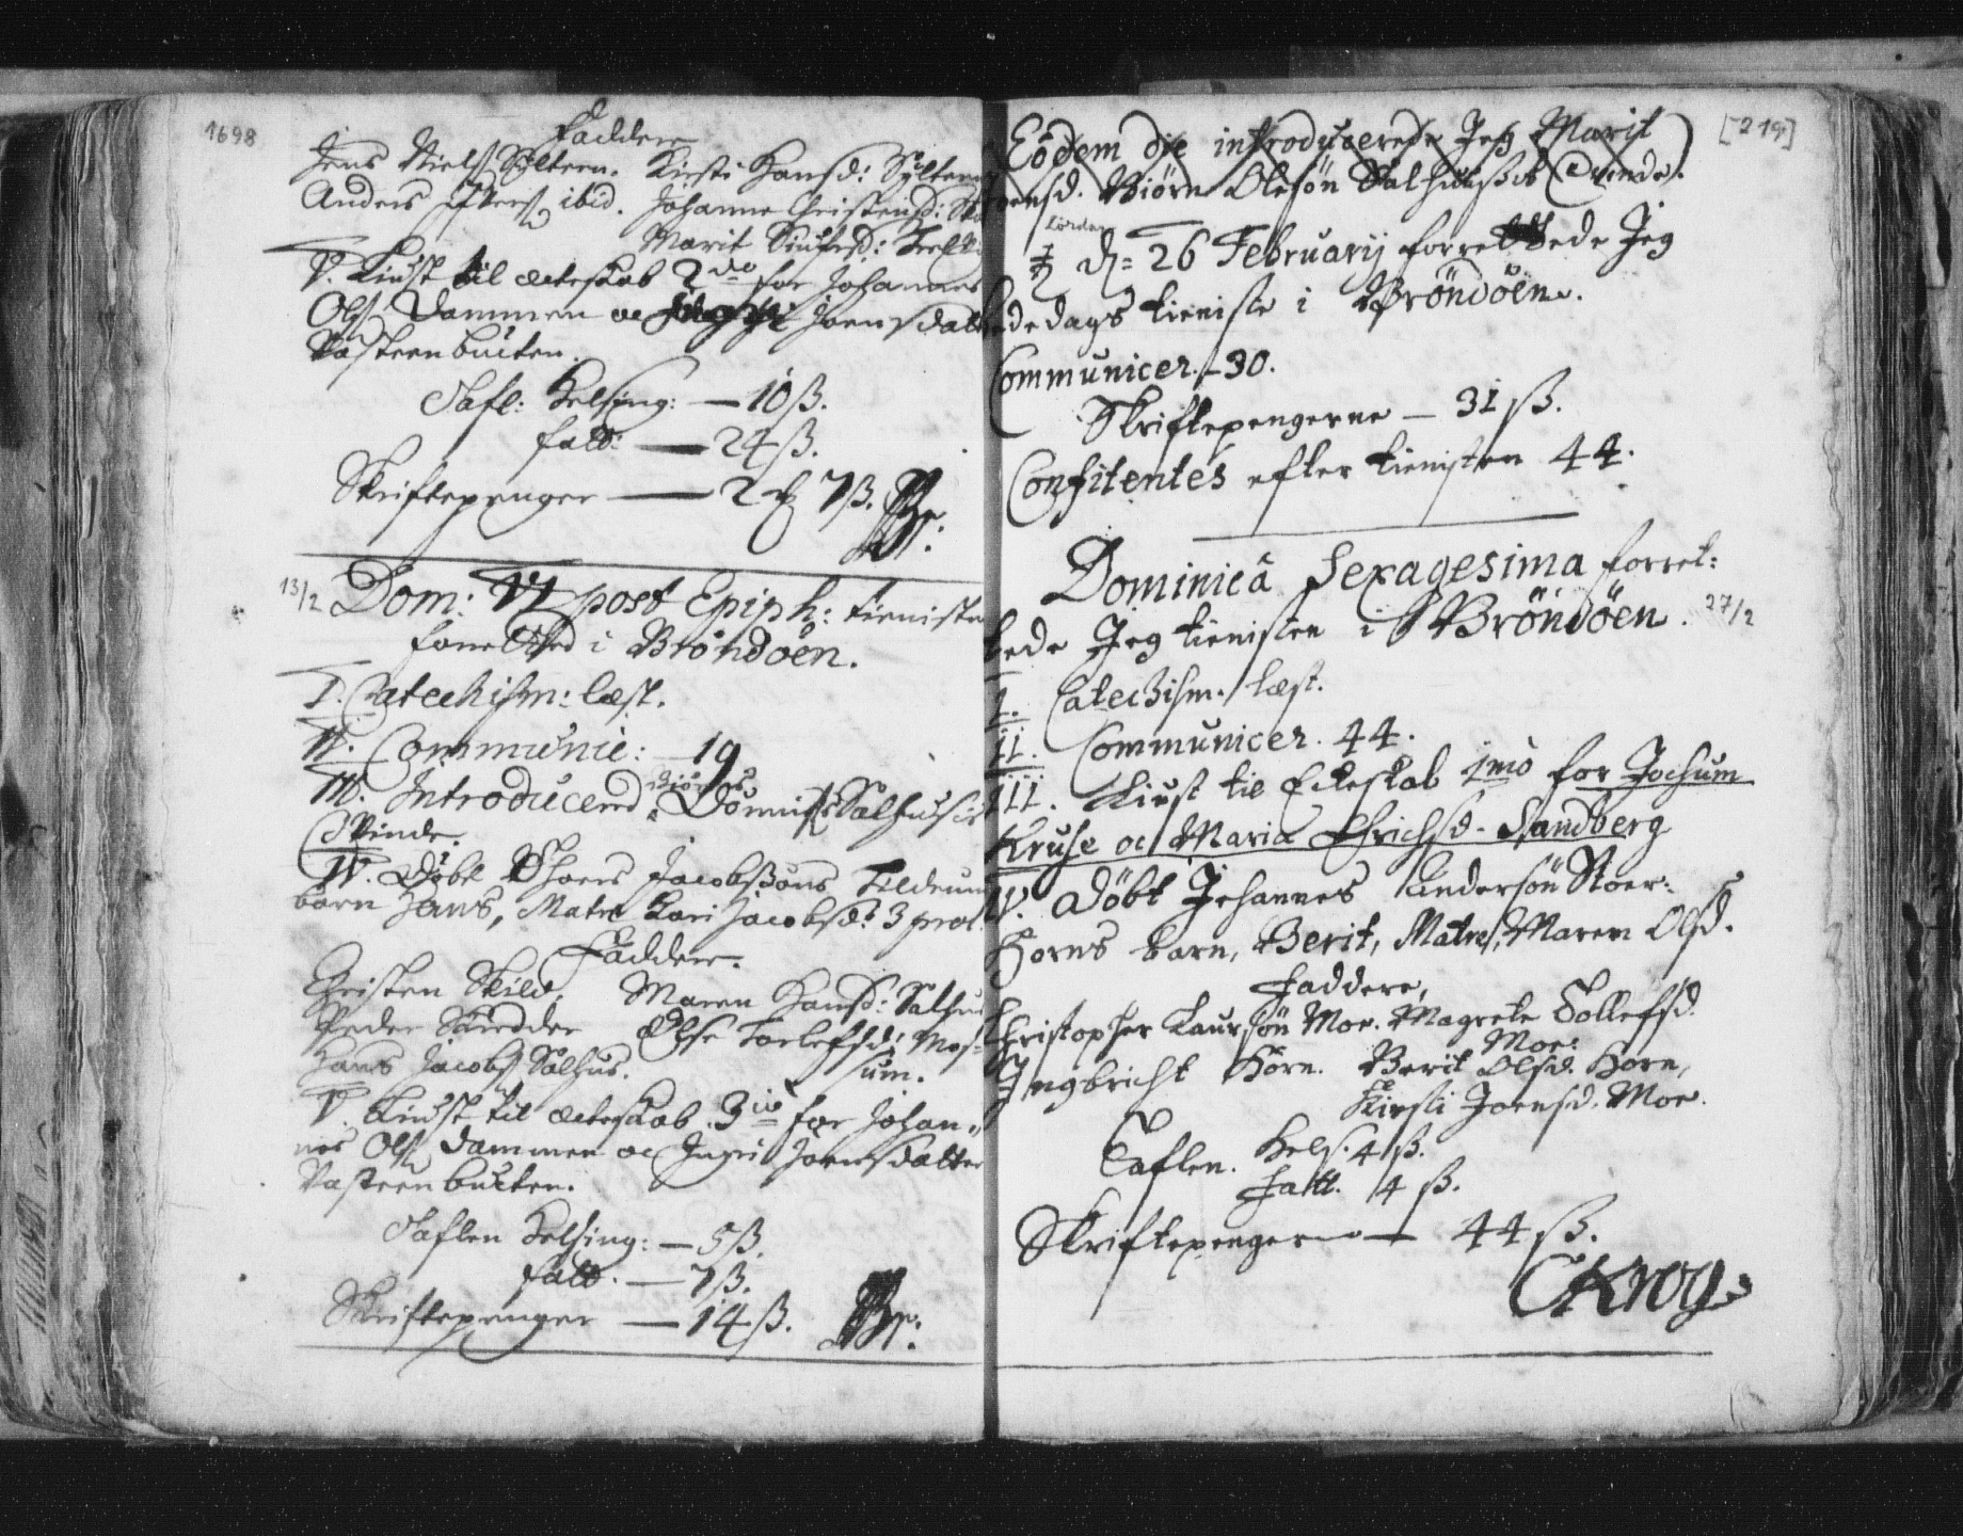 1698
Faddere
Jens Niels: Sylteren. Kirsti Hansd: Sylteren
Anders ibid. Johanne Christensd:
Marit
V. Liust til ecteskab 2do for Johannes
Ols: Dammen oc Joensdatter
Vasteenbucten.
Tafl: Helsing: — 10 ß.
fatt: — 24 ß.
Skriftepenger — 2 7 ß. Br:
13/2 Dom: VI post Epiph: tienisten
forretted i Bröndöen.
I. Catechism: læst.
II. Communic: — 19
III. Introducered Biörns Dönnis: Salhus
Qvinde.
IV. Döbt Jacobsöns Tilderum
barn Hans, Matre Kari Jacobsd: 3
Faddere.
Christen Skild. Maren Hansd: Salhus
Peder Else Torlefsd: Mos-
Hans Jacobs: Salhus. um.
V. Liust til ecteskab 3io for Johan-
nes Ols: Dammen oc Ingri Joensdatter
Vasteenbucten.
Taflen Helsing: — 5 ß.
fatt. — 7 ß.
Skriftepenger — 14 ß. Br:
[219]
Eodem die introducerede Jeg Marit
Joensd. Biörn Olesön Salhus Qvinde.
Lördag
d: 26 February forrettede Jeg
Bededags tieniste i Bröndöen.
Communicer. — 30.
Skriftepengerne — 31 ß.
Confitentes efter tienisten 44.
Dominica Sexagesima forret:
tede Jeg tienisten i Bröndöen. 27/2
I. Catechism. læst.
II. Communicer. 44.
III. Liust til Ecteskab 1mo for Jochum
Kruse oc Maria Erichsd. Sandberg
IV. Döbt Johannes Andersön Stoer-
Horns barn, Berit, Matre, Maren Olsd.
Faddere,
Christopher Laursön Moe. Magrete Tollefsd.
Moe:
Ingbricht Horn. Berit Olsd. Horn,
Kirsti Joensd. Moe.
Taflen. Hels. 4 ß.
fatt. 4 ß.
Skriftepengerne — 44 ß.
CKrog